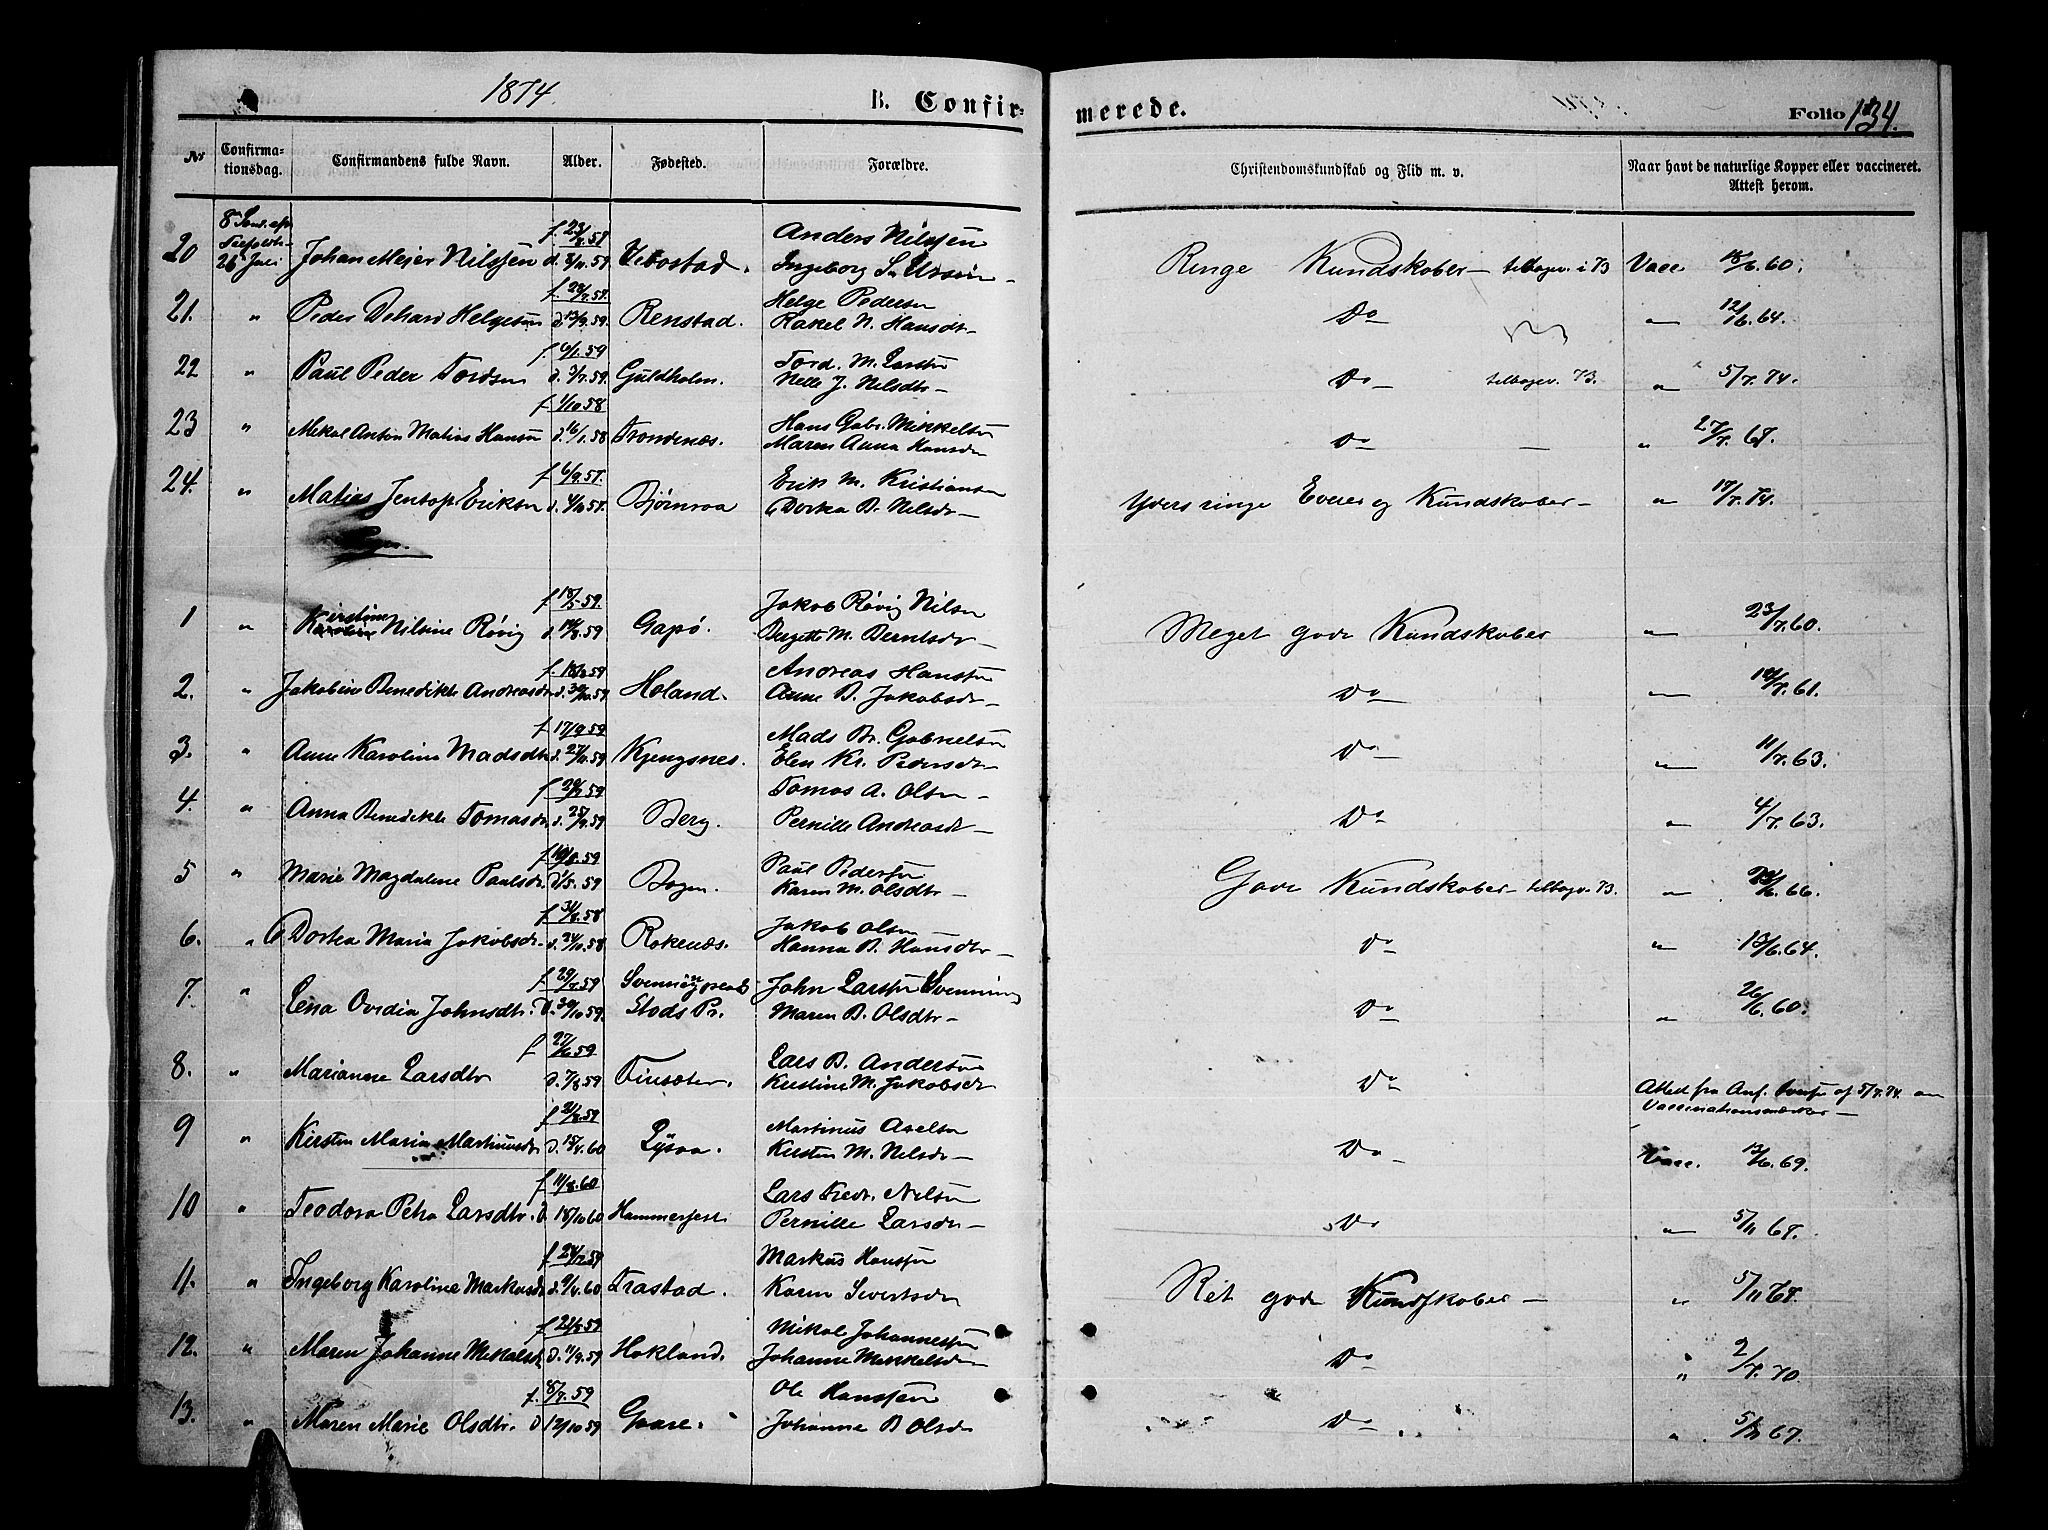 1874.
B. Confir-
merede.
Folio 134.
Nr
Confirma-
tionsdag.
Confirmandens fulde Navn.
Alder.
Fødested.
Forældre.
Christendomskundskab og Flid m. v.
Naar havt de naturlige Kopper eller vaccineret.
Attest herom.
20 26 Juli Johan Mejer Nilssen Vebostad. Anders Nilssen
Ingeborg
Ringe Kundskaber — tilbagev. i 73 Vacc 18/6.60.
21. " Peder Helgesen d. 13/9.59. Renstad. Helge Pedersen
Rakel N. Hansdtr —
Do " 12/6.64.
22 " Paul Peder Tordsen f. 6/1.59 d. 3/7.59. Guldholm. Tord. M. Larsen
Nelle J. Nilsdtr —
Do — tilbagev. 73. " 5/7.74.
23 " Mekal Anton Matias Hansen f. 1/10 58 d. 16/1.58 Trondenæs. Hans Gabr. Mikkelsen
Maren Anna Hansdtr
Do — "
24. " Matias Jentoft Eriksen f. 6/9.57. d. 4/10 57. Bjørnraa Erik M. Kristiansen
Dorka B. Nilsdr —
Yders ringe Evner og Kundskaber — " 17/7.74.
1 " Kirstine Nilsine Røvig Gapø. Jakob Røvig Nilsen
Birgitte M. Berntsdr —
Meget gode Kundskaber " 23/7.60.
2. " Jakobine Benedikte Andreasdr d. 30/10.59 Holand. Andreas Hansen
Anne B. Jakobsdr —
Do —
3. " Anne Karoline Madsdtr f. 17/9 59 d. 27/11.59 Kjengsnes. Mads Br. Gabrielsen
Elen Kr. Pedersdr
Do — " 11/7.63.
4. " Anna Benedikte Tomasdr Berg. Tomas A. Olsen —
Pernille Andreasdr —
Do " 4/7.63.
5 " Marie Magdalene Paulsdr Bogen. Paul Pedersen
Karen M. Olsdtr —
Gode Kundskaber — tilbagv. 73. "
6. " Dortea Maria Jakobsdr. f. 31/8.58 d. 24/10.58 Rokenæs. Jakob Olsen
Hanna B. Hansdtr —
Do — " 13/6.64.
7. " Lena Ovidia Johnsdtr. f. 29/7.59 D. 30/10 59. Stods Pr. John Larsen Svenning
Maren B. Olsdtr —
Do — " 26/6.60.
8. " Marianne Larsdtr D. 7/8 59 Finsæter. Lars B. Andersen
Kirstine M. Jakobsdr
Do — Attest fra
Vaccinationsmærker —
9 " Kirsten Maria Martinusdr Lysaa. Martinus Axelsen
Kirsten M. Nilsdr —
Do — Vacc. 13/6.69.
10 " Teodora Petra Larsdtr. f. 11/8.60 D. 18/10 60 Hammerfest Lars Fredr. Nilsen
Pernille Larsdr —
Do " 5/11 67.
11. " Ingeborg Karoline Markusdr f. 24/12.59 d. 9/4.60 Trastad. Markus Hansen
Karen Sivertsdr
Ret gode Kundskaber — "
12. " Maren Johanne Mikalsdr D. 11/9.59 Hokland. Mikal Johannessen
Johanne Mikkelsdr
Do — " 2/7.70.
13. " Maren Marie Olsdtr. D 12/10 59 Gaare. Ole Hanssen
Johanne B Olsdr
Do — "